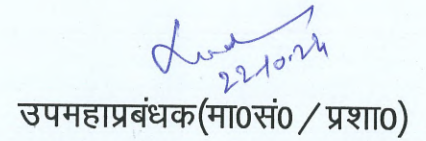 22.10.24
उपमहाप्रबंधक(मा0सं0 / प्रशा0)